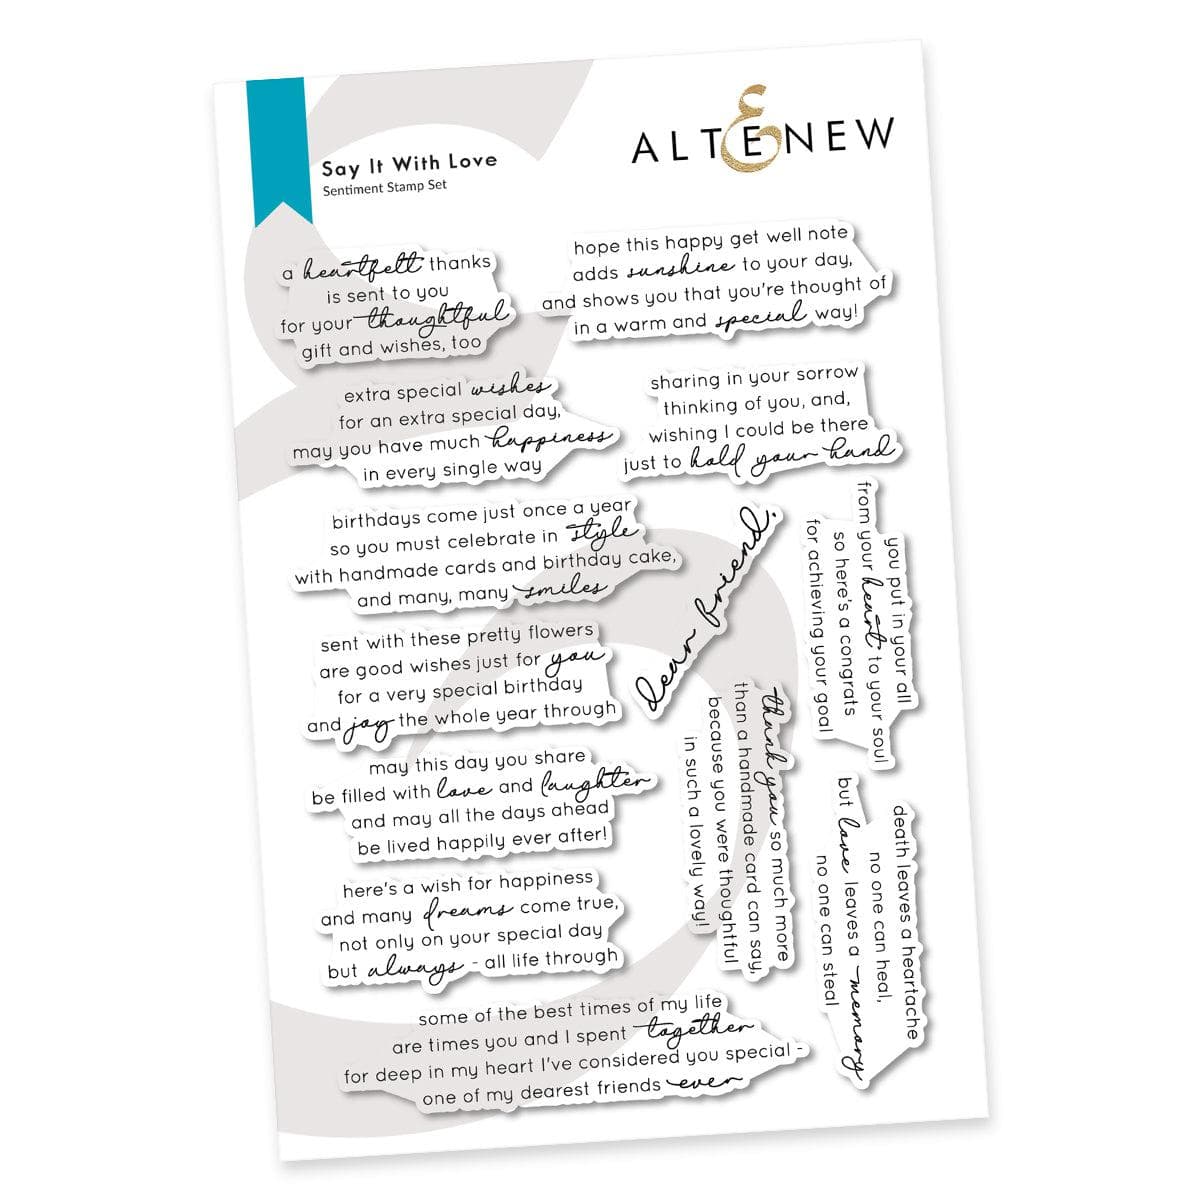 Say It With Love
Sentiment Stamp Set
ALTENEW
a heartfelt thanks
is sent to you
for your thoughtful
gift and wishes, too
hope this happy get well note
adds sunshine to your day,
and shows you that you're thought of
in a warm and special way!
extra special wishes
for an extra special day,
may you have much happiness
in every single way
sharing in your sorrow
thinking of you, and,
wishing I could be there
just to hold your hand
birthdays come just once a year
so you must celebrate in style
with handmade cards and birthday cake,
and many, many smiles
dear friend,
you put in your all
from your heart to your soul
so here's a congrats
for achieving your goal
sent with these pretty flowers
are good wishes just for you
for a very special birthday
and joy the whole year through
thank you so much more
than a handmade card can say,
because you were thoughtful
in such a lovely way!
may this day you share
be filled with love and laughter
and may all the days ahead
be lived happily ever after!
death leaves a heartache
no one can heal,
but love leaves a memory
no one can steal
here's a wish for happiness
and many dreams come true,
not only on your special day
but always - all life through
some of the best times of my life
are times you and I spent together
for deep in my heart I've considered you special -
one of my dearest friends ever